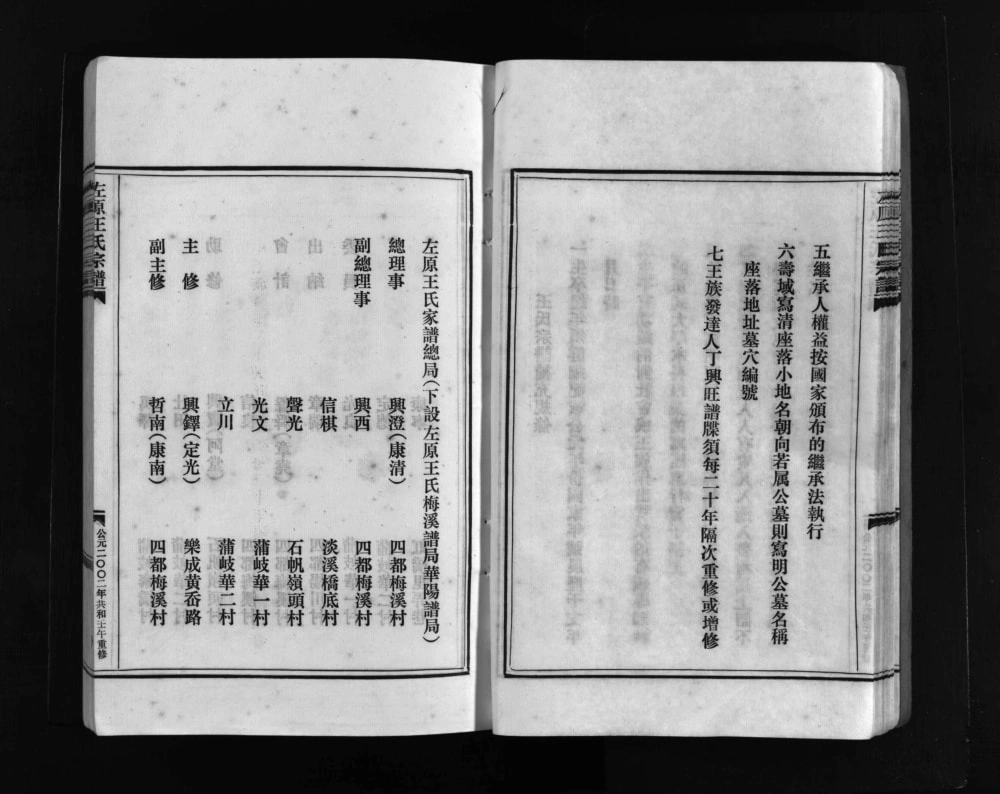 五繼承人權益按國家頒布的繼承法執行
六壽域寫清座落小地名朝向若属公墓則寫明公墓名稱
座落地址墓穴編號
七王族發達人丁興旺譜牒須每二十年隔次重修或增修
左原王氏家譜總局(下設左原王氏梅溪譜局華陽譜局)
總理事 興澄(康清) 四都梅溪村
副總理事 興西 四都梅溪村
信棋 淡溪橋底村
聲光 石帆嶺頭村
光文 蒲岐華一村
立川 蒲岐華二村
主修 興鐸(定光) 樂成黄岙路
副主修 哲南(康南) 四都梅溪村
左原王氏宗譜
公元二〇〇二年共和壬午重修